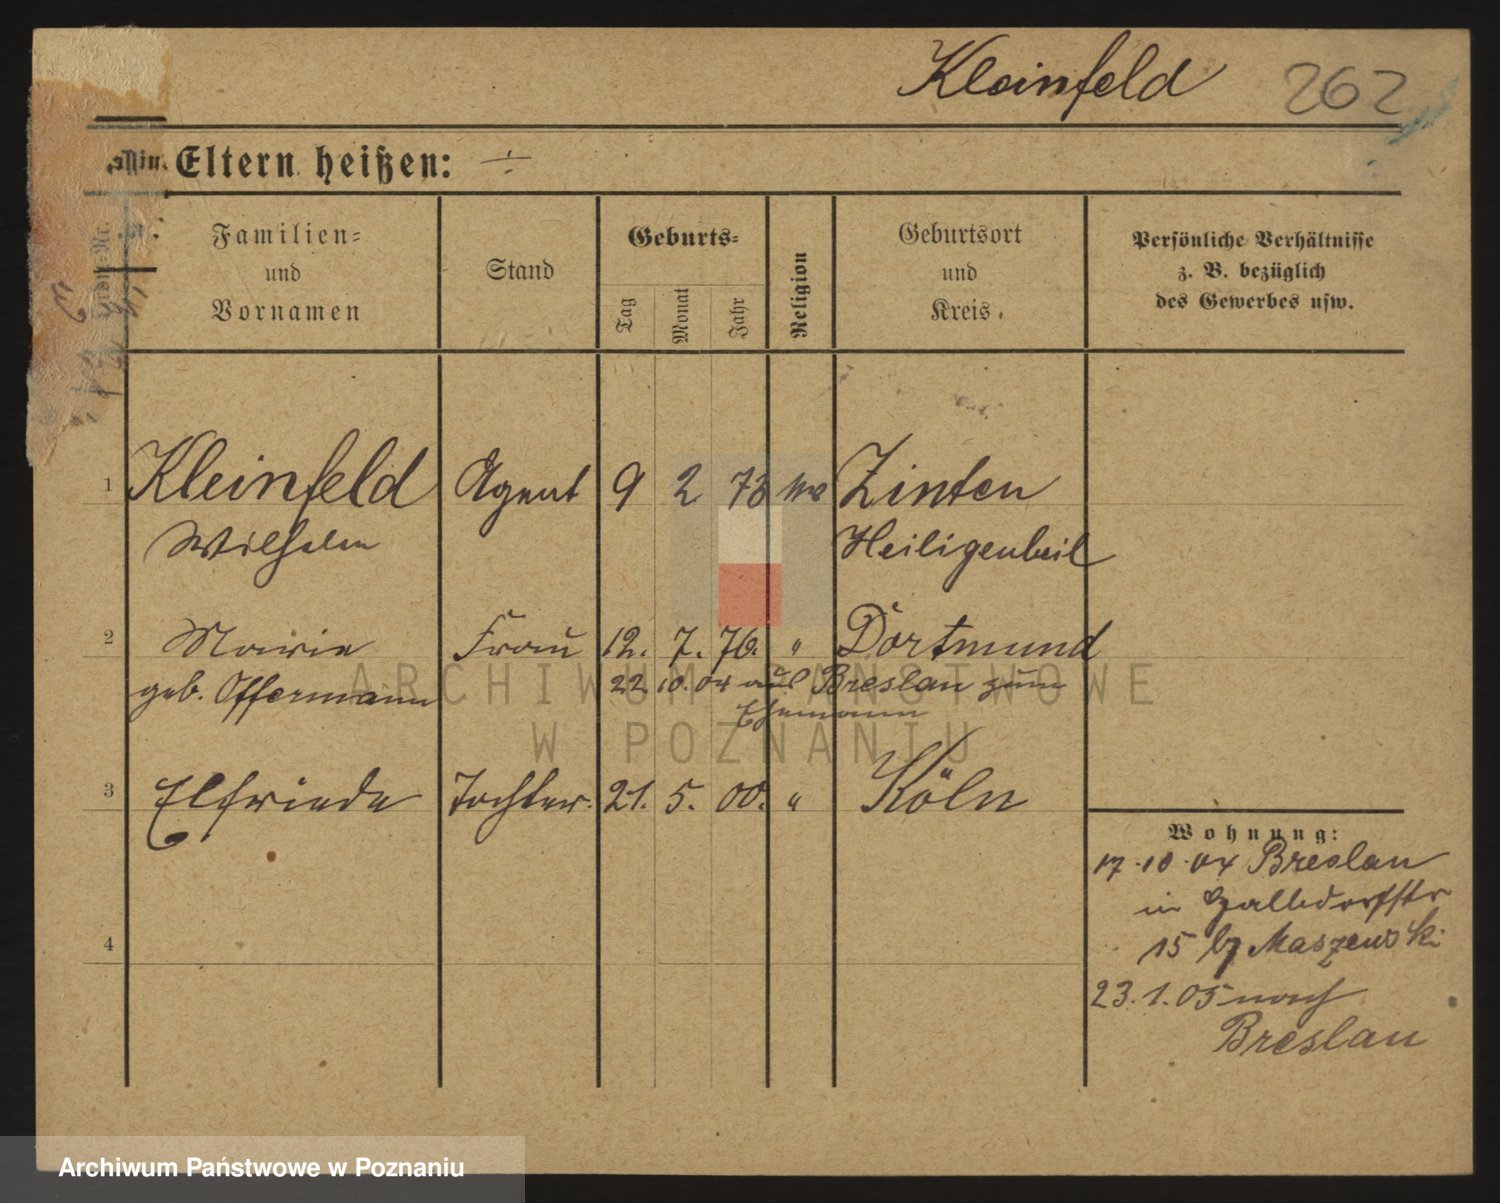 Kleinfeld 262
Eltern heißen: ÷
Familien=
und
Vornamen
Stand
Geburts=
Tag Monat Jahr
Religion
Geburtsort
und
Kreis.
Persönliche Verhältnisse
z. B. bezüglich
des Gewerbes usw.
1 Kleinfeld Agent 9 2 73 Zinten
Wilhelm Heiligenbeil
2 Marie Frau 12. 7. 76. " Dortmund
geb. Offermann 22 10. 04 aus Breslau zum
Ehemann
3 Elfriede Tochter. 21. 5. 00. " Köln
4
Wohnung:
17.10.04 Breslau
in
15 Maszewski
23.1.05 nach
Breslau
ARCHIWUM PAŃSTWOWE
W POZNANIU
Archiwum Państwowe w Poznaniu